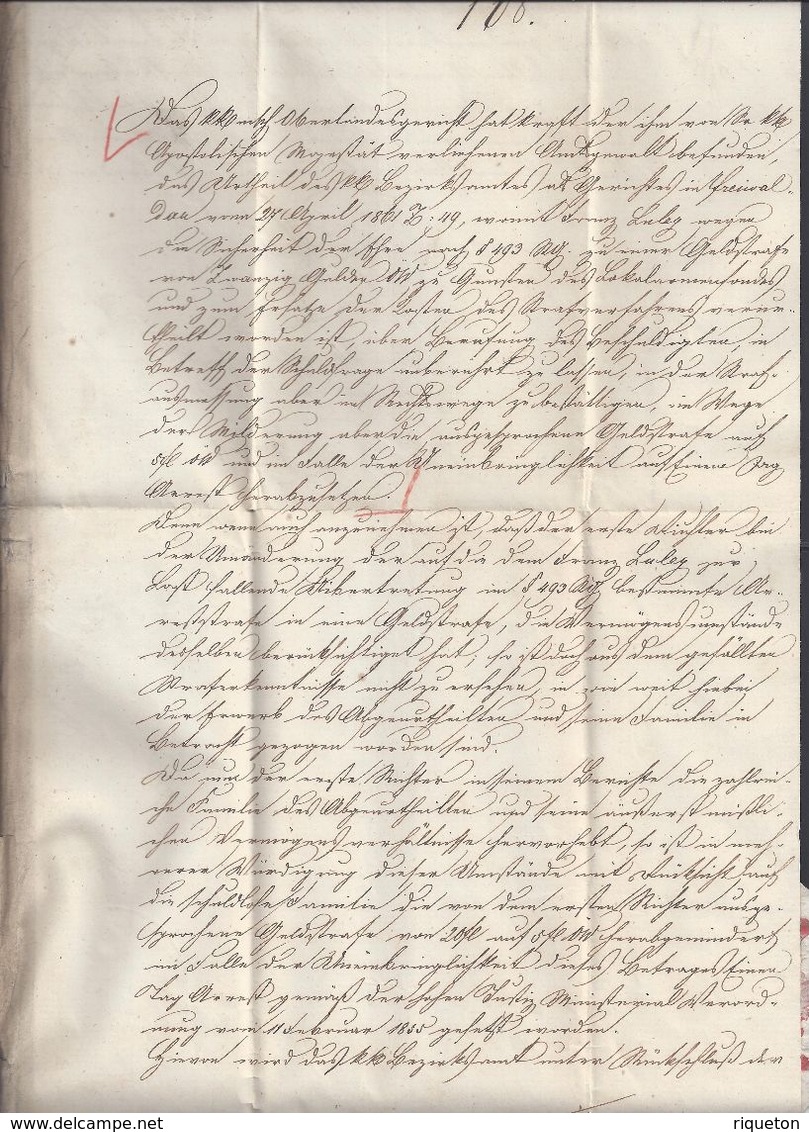 108.
Das kk m sch Oberlandesgericht hat kraft der ihm von Sr kk
Apostolischen Majestät verliehenen Amtsgewalt befunden,
das Urtheil des kk Bezirksamtes als Gerichtes in Freiwal-
dau vom 27 April 1861 Z: 49, womit Franz Luley wegen
die Sicherheit der Ehre nach § 493 StG. zu einer Geldstrafe
von Zwanzig Gulden ÖW zu Gunsten des Lokalarmenfondes
und zum Ersatze der Kosten des Strafverfahrens verur-
theilt worden ist, über Berufung des Beschuldigten, in
Betreff der Schuldfrage unberührt zu lassen, in der Straf-
ausmessung aber im Rechtswege zu bestättigen, im Wege
der Milderung aber die ausgesprochene Geldstrafe auf
5 fl ÖW und im Falle der Uneinbringlichkeit auf Einen Tag
Arrest herabzusetzen.
Denn wenn auch anzunehmen ist, daß der erste Richter bei
der Umänderung der auf die dem Franz Luley zur
Last fallende Uibertretung im § 493 StG bestimmte Ar-
reststrafe in eine Geldstrafe, die Vermögensumstände
desselben berücksichtiget hat, so ist doch aus dem gefällten
Straferkenntnisse nicht zu ersehen, in wie weit hiebei
der Erwerb des Abgeurtheilten und seine Familie in
Betracht gezogen worden sind.
Da nun der erste Richter in seinem Berichte die zahlrei-
che Familie des Abgeurtheilten und seine äußerst mißli-
chen Vermögensverhältnisse hervorhebt, so ist in meh-
rerer Würdigung dieser Umstände mit Rücksicht auf
die schuldlose Familie die von dem ersten Richter ausge-
sprochene Geldstrafe von 20 fl auf 5 fl ÖW herabgemindert
im Falle der Uneinbringlichkeit dieses Betrages Einen
Tag Arrest gemäß der hohen Justiz Ministerial Verord-
nung vom 11 Februar 1855 gesetzt worden.
Hievon wird das kk Bezirksamt unter Rückschluß der
www.delcampe.net
riqueton